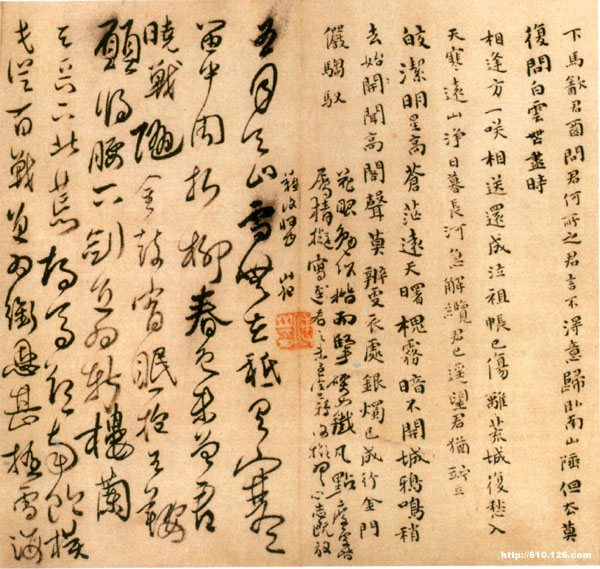 下馬飲君酒問君何所之君言不得意歸臥南山陲但去莫
復問白雲無盡時
相逢方一咲相送還成泣祖帳已傷離荒城復愁入
天寒遠山淨日暮長河急解纜君已遥望君猶竚立
皎潔明星高蒼茫遠天曙槐霧暗不開城鴉鳴稍
去始開聞高閣聲莫辨更衣處銀燭已成行金門
儼騶馭
五月天山雪無花祗有寒笛
中聞折柳春色未曾看
曉戰隨金鼓宵眠抱玉鞍
願將腰下劍直為斬樓蘭
天兵下北荒胡馬欲南飲橫
戈從百戰直為銜恩甚握雪海
http://610.126.com/